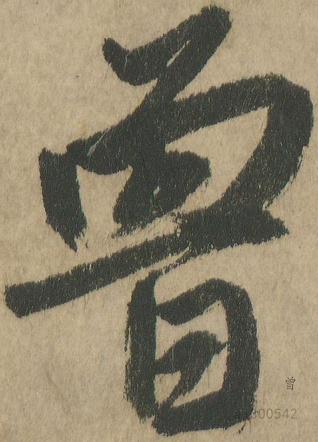 曾
曾
300542